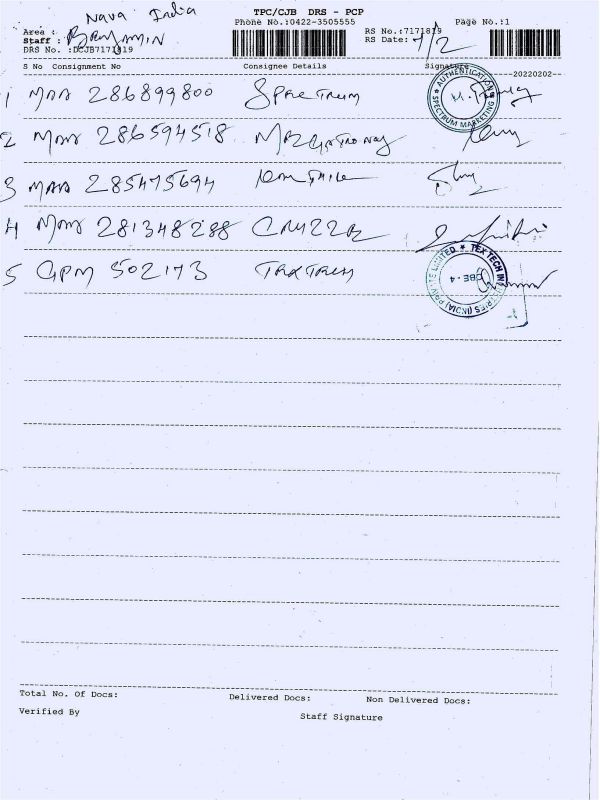 Nava India
TPC/CJB DRS - PCP
Phone No.:0422-3505555
Page No.:1
Area :
RS No.:7171819
Staff : BENJAMIN
RS Date: 7/2
DRS No. :DCJB7171819
S No Consignment No Consignee Details Signature
--20220202--
1 MAA 286899800 Spectrum
AUTHENTICATION
SPECTRUM MARKETING
2 MAA 286594518
3 MAA 285475694
4 MAA 281348288
5 GPM 502173 Textech
TEX TECH INDUSTRIES (INDIA) PRIVATE LIMITED
CBE - 4
Total No. Of Docs: Delivered Docs: Non Delivered Docs:
Verified By Staff Signature